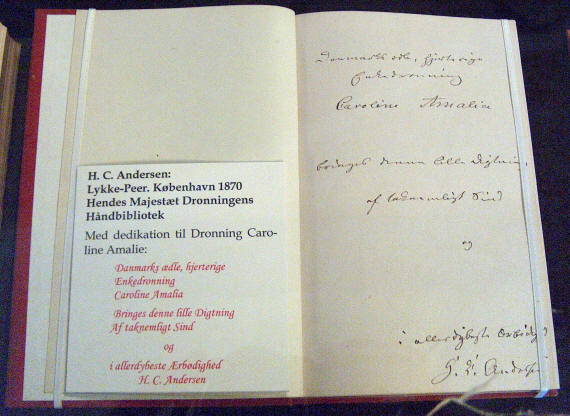 H. C. Andersen:
Lykke-Peer. København 1870
Hendes Majestæt Dronningens
Håndbibliotek
Med dedikation til Dronning Caro-
line Amalie:
Danmarks ædle, hjerterige
Enkedronning
Caroline Amalia
Bringes denne lille Digtning
Af taknemligt Sind
og
i allerdybeste Ærbødighed
H. C. Andersen
Danmarks ædle, hjerterige
Enkedronning
Caroline Amalia
bringes denne lille Digtning,
af taknemligt Sind
og
i allerdybeste Ærbødighed
H. C. Andersen